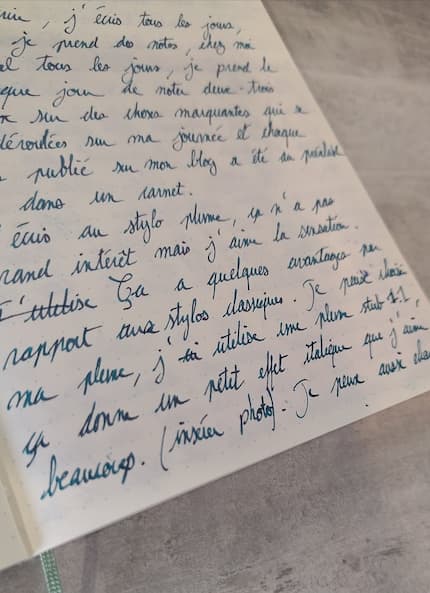 , j'écris tous les jours,
je prend des notes, chez moi
tous les jours, je prend le
que jour de noter deux-trois
sur des choses marquantes qui se
déroulées sur ma journée et chaque
publié sur mon blog a été au préalable
dans un carnet.
écris au stylo plume, ça n'a pas
rand intérêt mais j'aime la sensation.
J'utilise Ça a quelques avantages par
rapport aux stylos classiques. Je peux choisir
ma plume, j' utilise une plume stub 1.1,
ça donne un petit effet italique que j'aime
beaucoup. (insérer photo). Je peux aussi